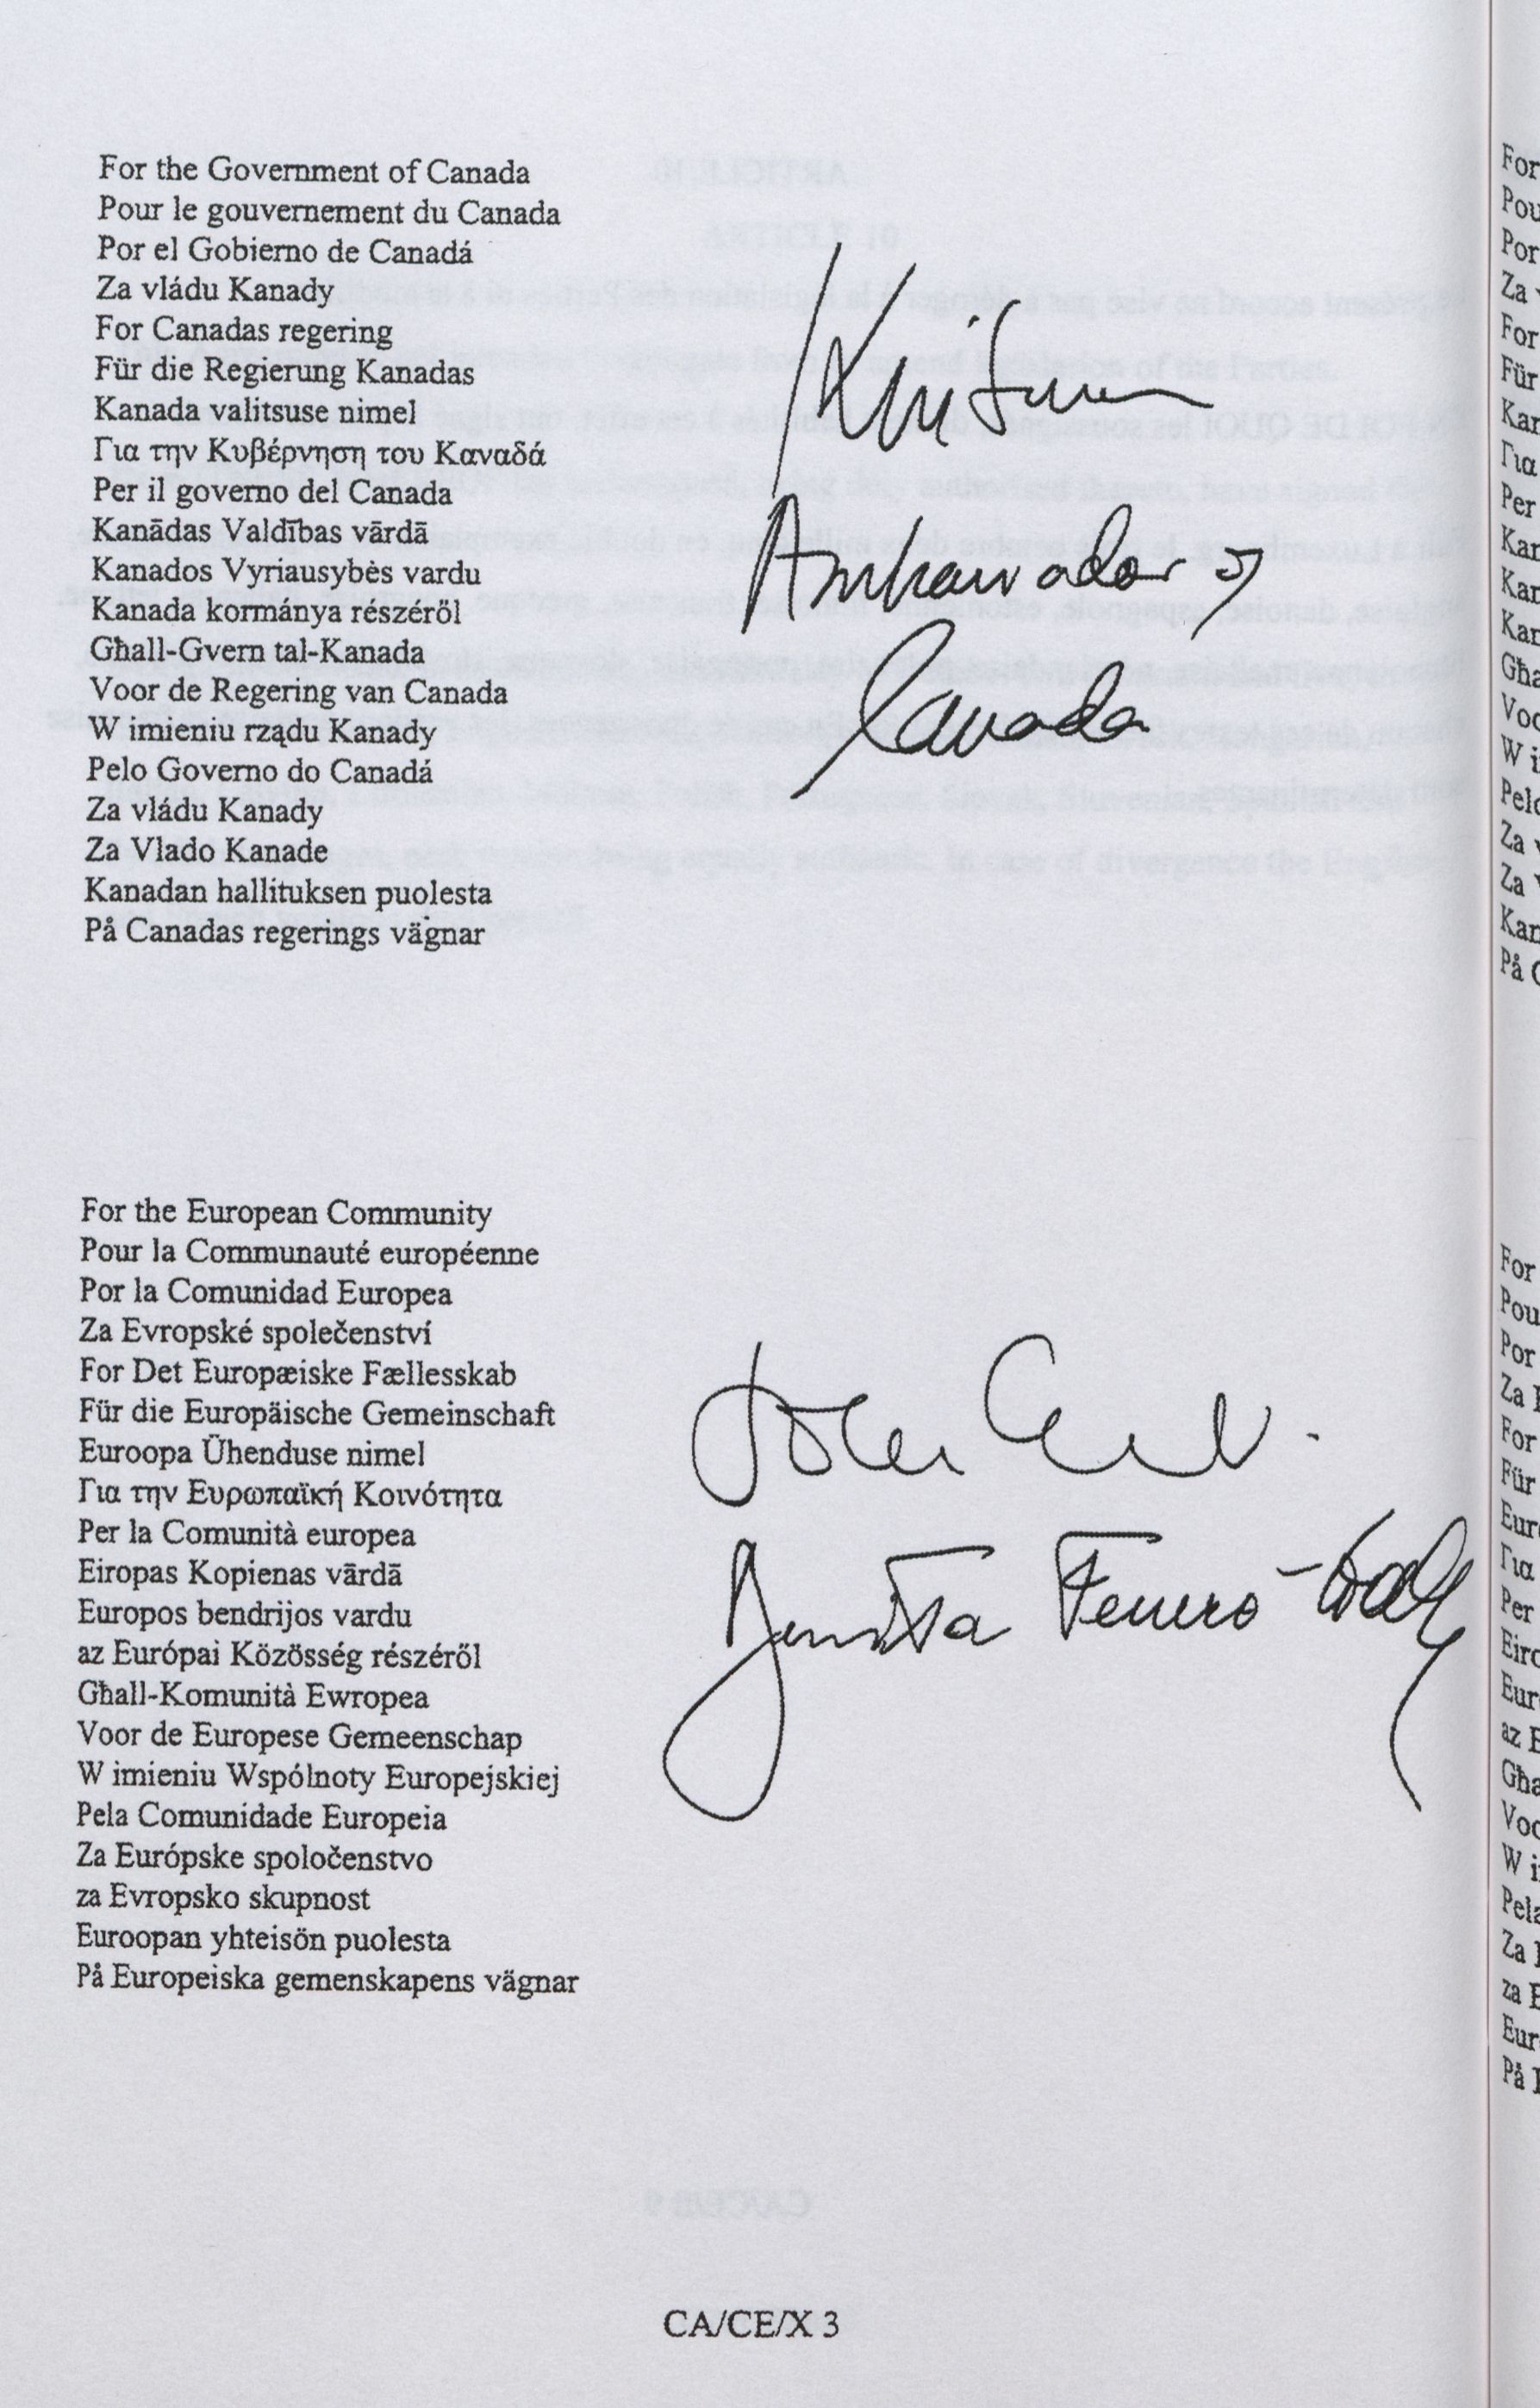 For the Government of Canada
Pour le gouvernement du Canada
Por el Gobierno de Canadá
Za vládu Kanady
For Canadas regering
Für die Regierung Kanadas
Kanada valitsuse nimel
Για την Κυβέρνηση του Καναδά
Per il governo del Canada
Kanādas Valdības vārdā
Kanados Vyriausybės vardu
Kanada kormánya részéről
Għall-Gvern tal-Kanada
Voor de Regering van Canada
W imieniu rządu Kanady
Pelo Governo do Canadá
Za vládu Kanady
Za Vlado Kanade
Kanadan hallituksen puolesta
På Canadas regerings vägnar
Ambassador of
Canada
For the European Community
Pour la Communauté européenne
Por la Comunidad Europea
Za Evropské společenství
For Det Europæiske Fællesskab
Für die Europäische Gemeinschaft
Euroopa Ühenduse nimel
Για την Ευρωπαϊκή Κοινότητα
Per la Comunità europea
Eiropas Kopienas vārdā
Europos bendrijos vardu
az Európai Közösség részéről
Għall-Komunità Ewropea
Voor de Europese Gemeenschap
W imieniu Wspólnoty Europejskiej
Pela Comunidade Europeia
Za Európske spoločenstvo
za Evropsko skupnost
Euroopan yhteisön puolesta
På Europeiska gemenskapens vägnar
CA/CE/X 3